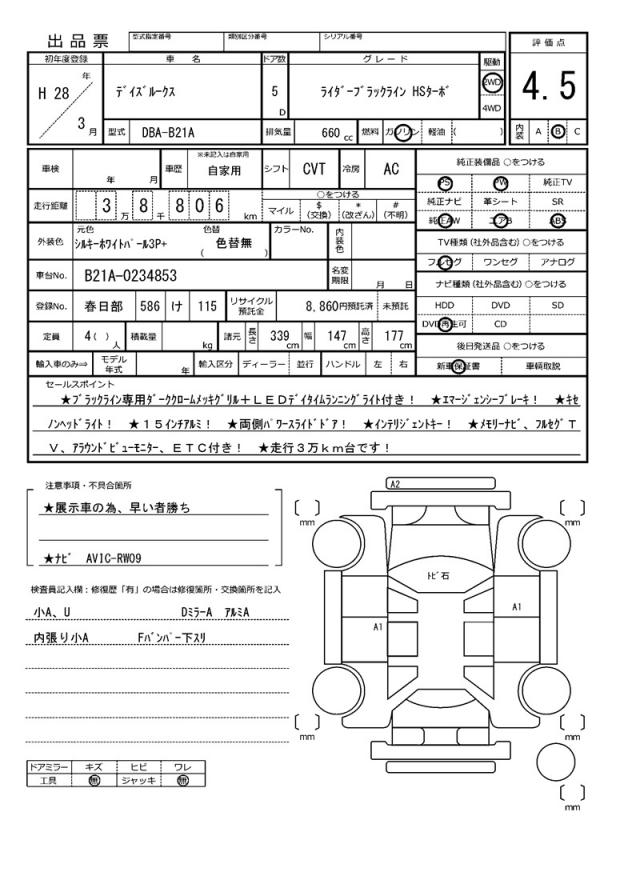 出品票
型式指定番号
類別区分番号
シリアル番号
評価点
4.5
内装 A B C
初年度登録
車名
ドア数
グレード
駆動
H 28 年
3 月
デイズルークス
5 D
ライダーブラックライン HSターボ
2WD
4WD
型式 DBA-B21A
排気量 660 cc
燃料 ガソリン 軽油 ( )
車検 年 月
車歴 ※未記入は自家用 自家用
シフト CVT
冷房 AC
走行距離 3万8千806 km
○をつける
マイル $(交換) *(改ざん) #(不明)
外装色
元色 シルキーホワイトパール3P+
色替 ( 色替無 )
カラーNo.
内装色
車台No. B21A-0234853
名変期限 月 日
登録No. 春日部 586 け 115
リサイクル預託金 8,860円預託済 未預託
定員 4( )人
積載量 kg
諸元 長さ 339cm 幅 147cm 高さ 177cm
輸入車のみ⇒ モデル年式 年 輸入区分 ディーラー 並行 ハンドル 左 右
純正装備品 ○をつける
PS PW 純正TV
純正ナビ 革シート SR
純正AW エアB ABS
TV種類(社外品含む) ○をつける
フルセグ ワンセグ アナログ
ナビ種類(社外品含む) ○をつける
HDD DVD SD
DVD再生可 CD
後日発送品 ○をつける
新車保証書 車輌取説
セールスポイント
★ブラックライン専用ダーククロームメッキグリル+LEDデイタイムランニングライト付き! ★エマージェンシーブレーキ! ★キセ
ノンヘッドライト! ★15インチアルミ! ★両側パワースライドドア! ★インテリジェントキー! ★メモリーナビ、フルセグT
V、アラウンドビューモニター、ETC付き! ★走行3万km台です!
注意事項・不具合箇所
★展示車の為、早い者勝ち
★ナビ AVIC-RW09
検査員記入欄:修復歴「有」の場合は修復箇所・交換箇所を記入
小A、U DミラーA アルミA
内張り小A Fバンパー下スリ
ドアミラー キズ ヒビ ワレ
工具 無 ジャッキ 無
A2
mm
mm
トビ石
A1
A1
mm
mm
mm